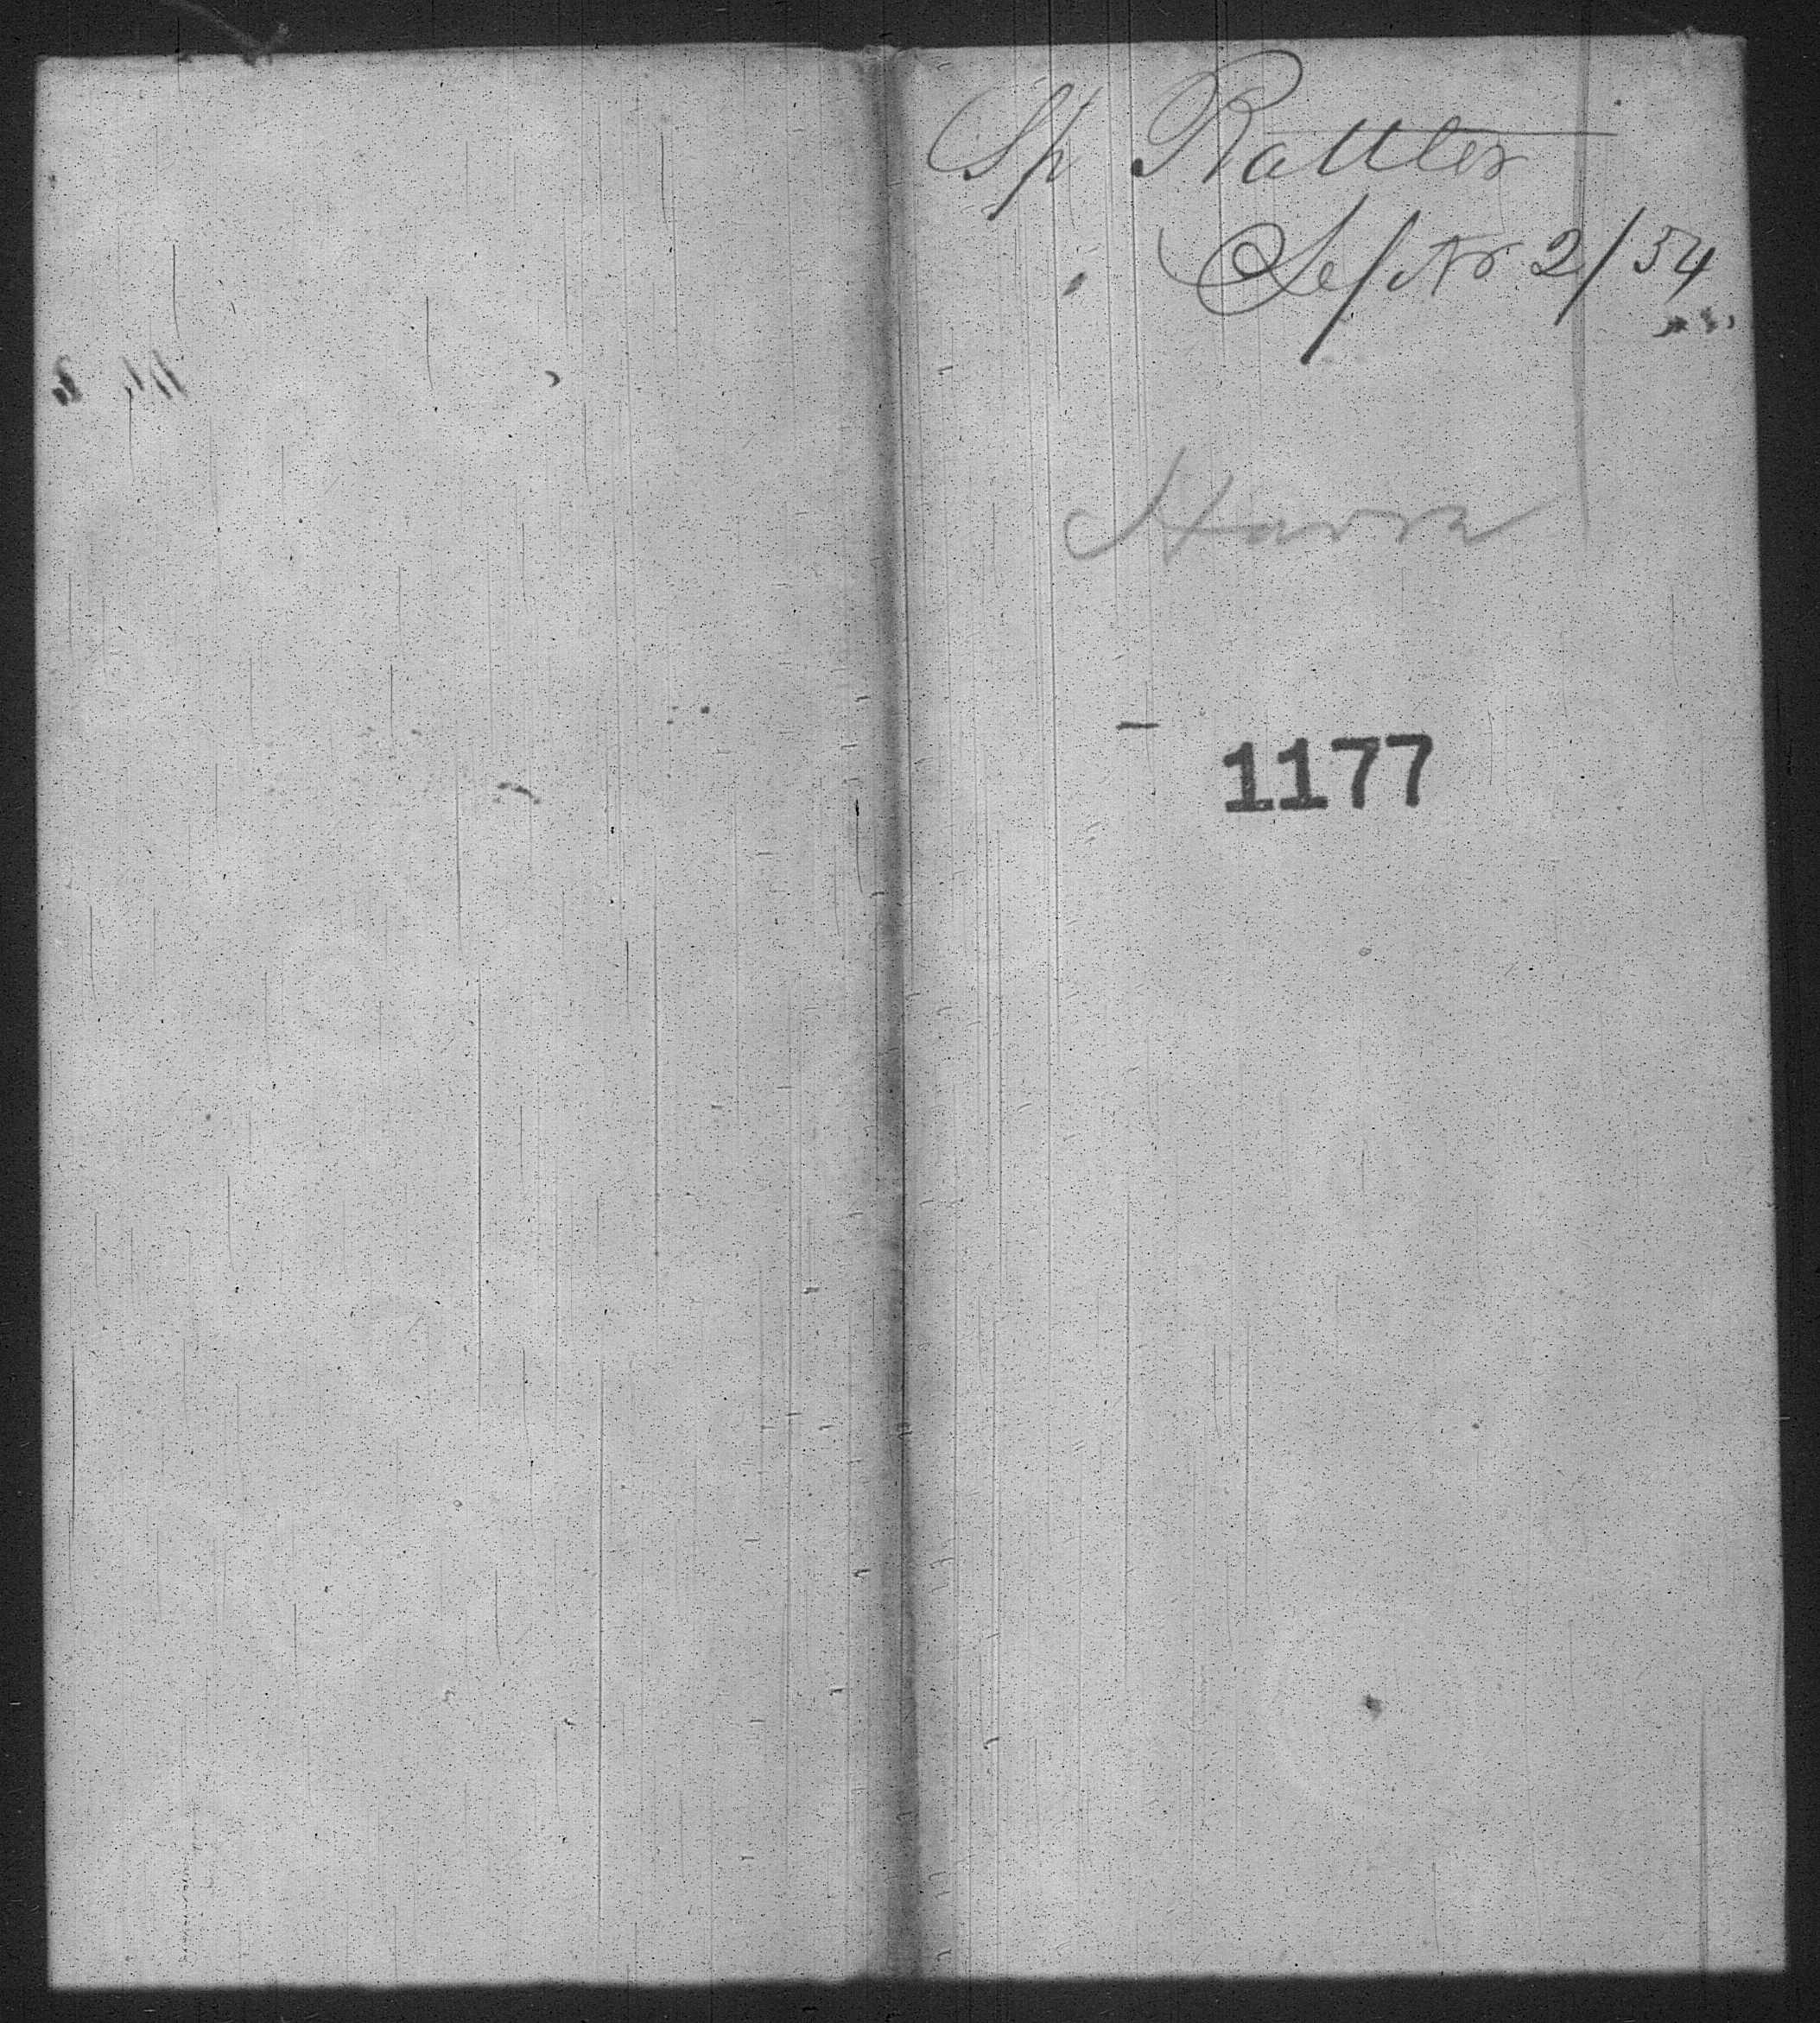 Sp Rattler
Septr 2/54
Havre
1177